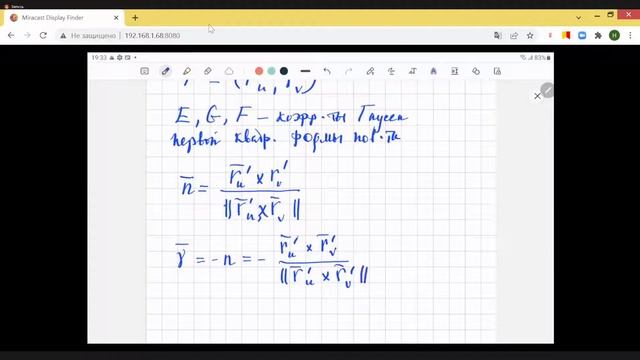 Запись
Miracast Display Finder
Не защищено 192.168.1.68:8080
19:33 83%
= (r̄'u, r̄'v)
E, G, F – коэфф-ты Гаусса
первой квадр. формы пов-ти
n̄ = r̄u' × r̄v' / ||r̄u' × r̄v'||
γ̄ = -n = - r̄u' × r̄v' / ||r̄u' × r̄v'||